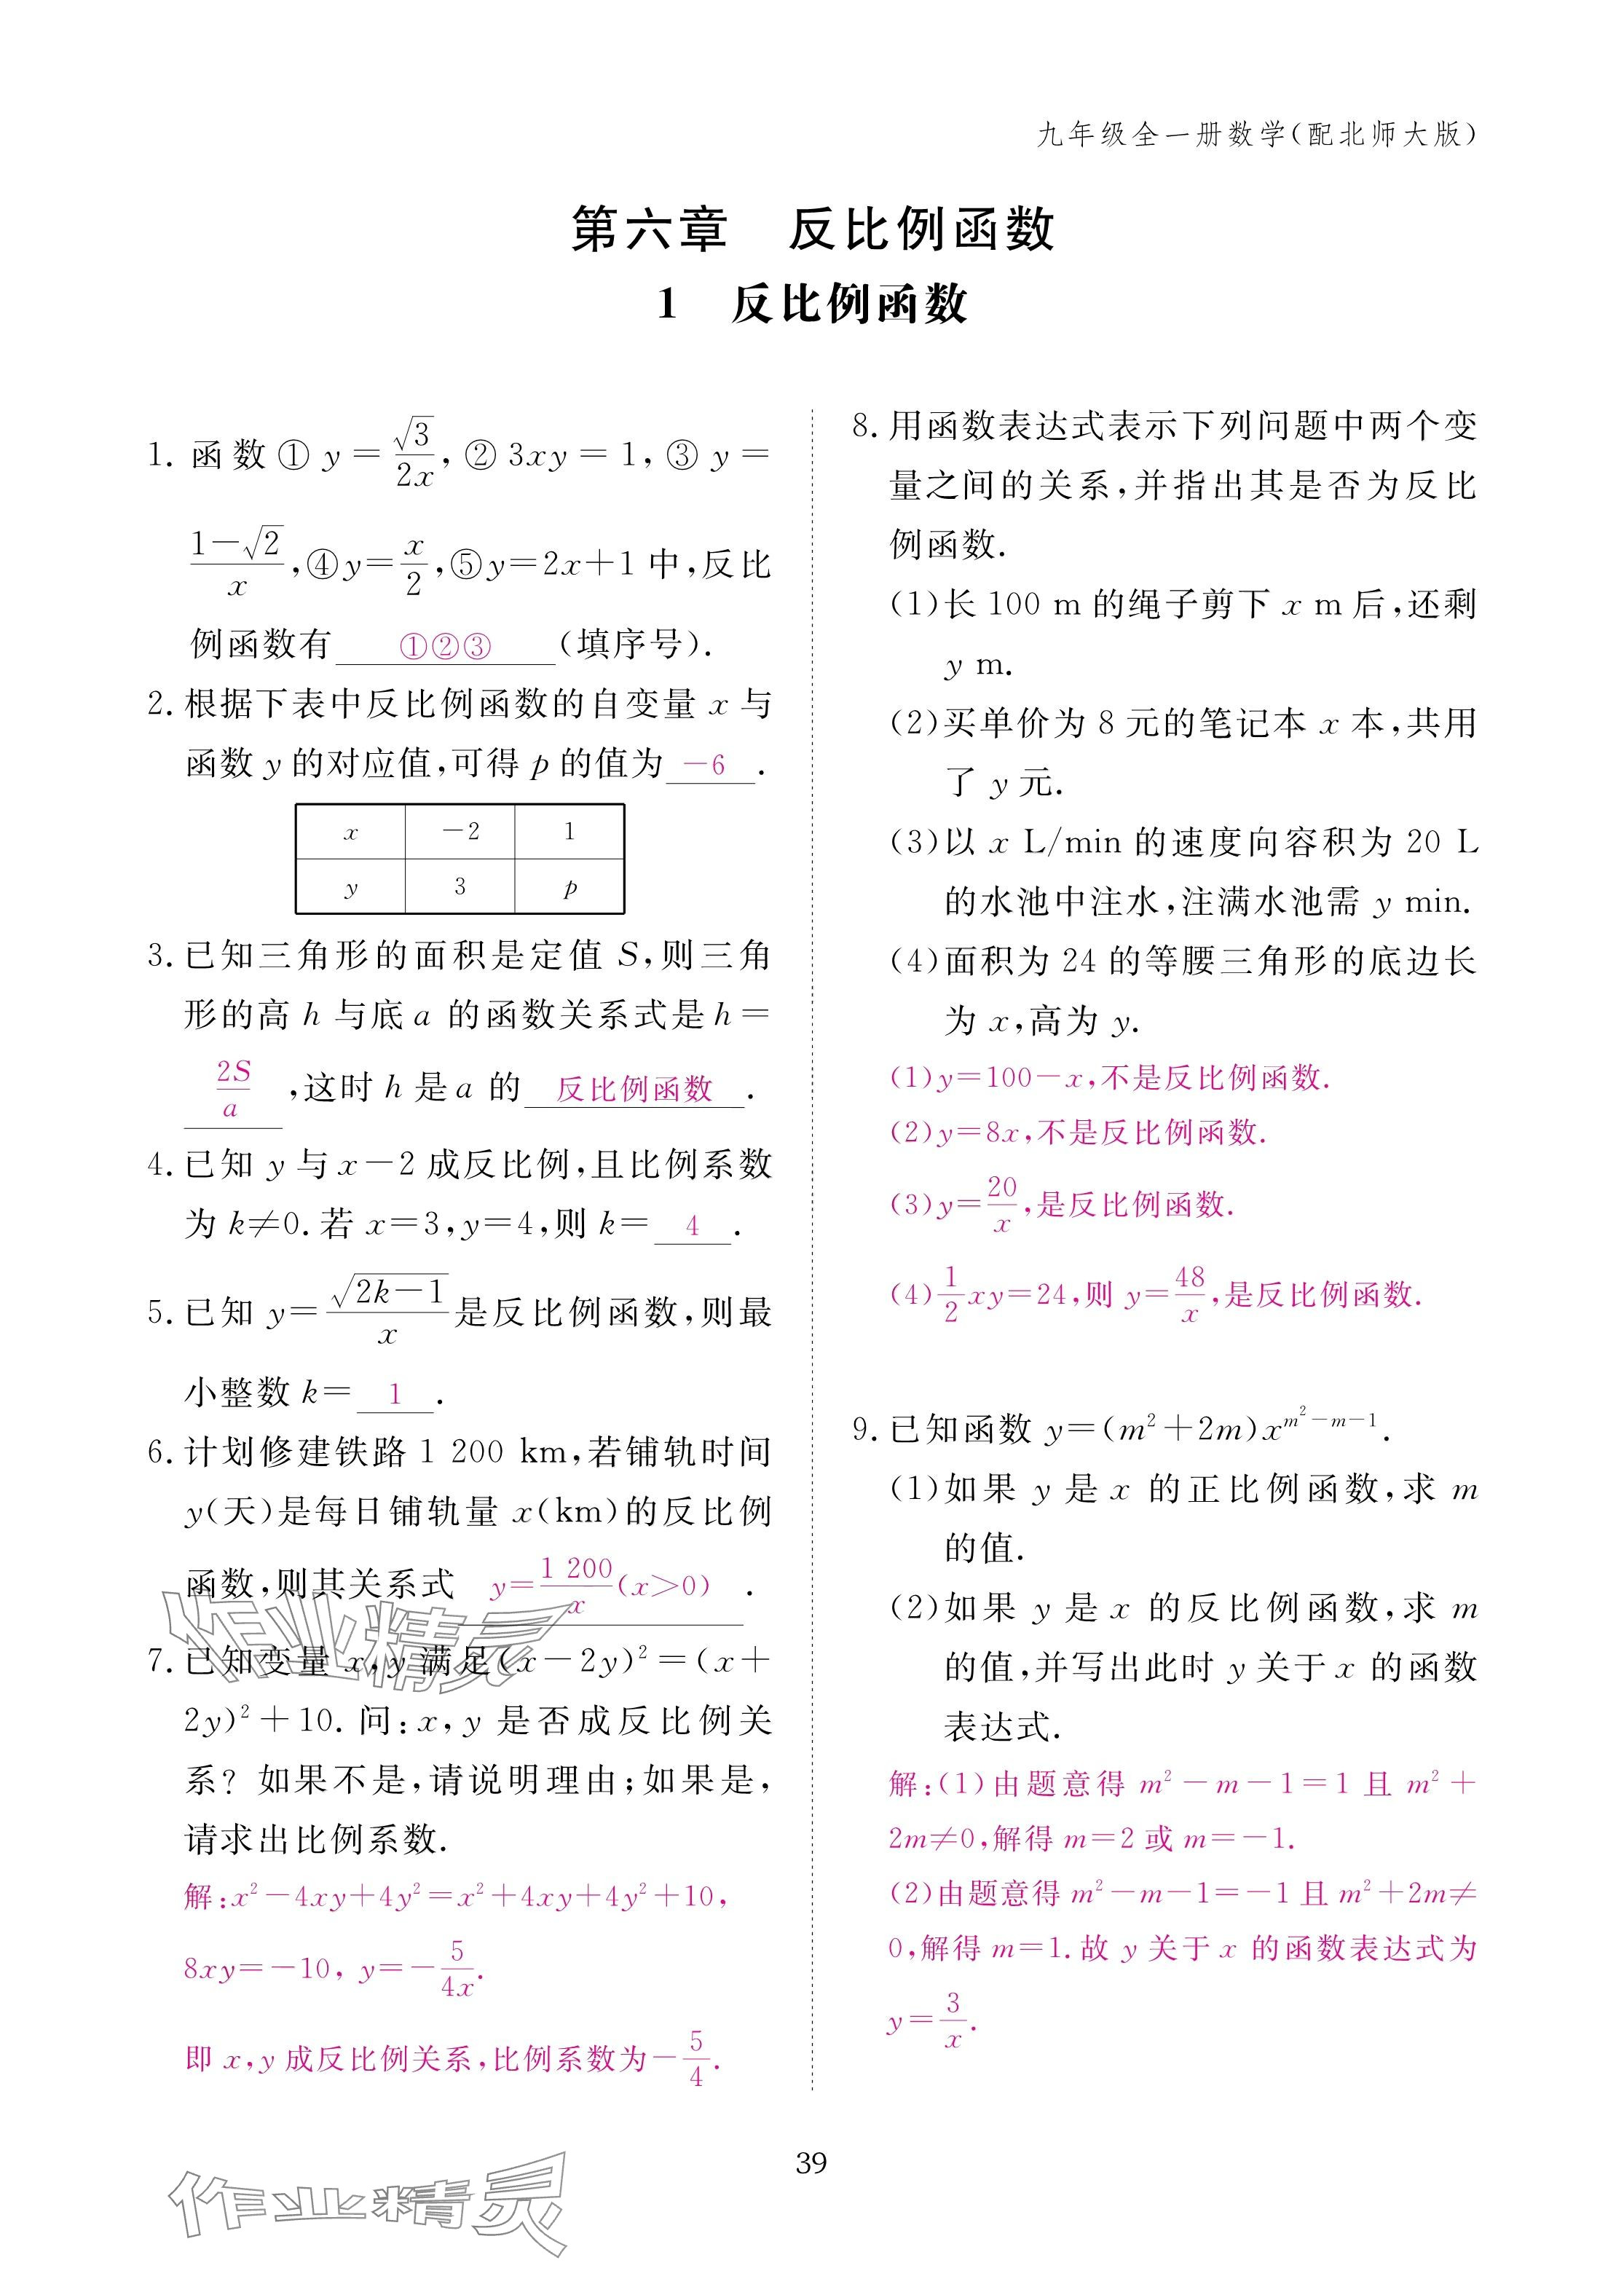 九年级全一册数学(配北师大版)
第六章 反比例函数
1 反比例函数
1. 函数① y = √3/2x, ② 3xy = 1, ③ y =
(1-√2)/x,④y=x/2,⑤y=2x+1 中,反比
例函数有 ①②③ (填序号).
2. 根据下表中反比例函数的自变量 x 与
函数 y 的对应值,可得 p 的值为 -6 .
x -2 1
y 3 p
3. 已知三角形的面积是定值 S,则三角
形的高 h 与底 a 的函数关系式是 h=
2S/a ,这时 h 是 a 的 反比例函数 .
4. 已知 y 与 x-2 成反比例,且比例系数
为 k≠0. 若 x=3,y=4,则 k= 4 .
5. 已知 y=√(2k-1)/x 是反比例函数,则最
小整数 k= 1 .
6. 计划修建铁路 1 200 km,若铺轨时间
y(天)是每日铺轨量 x(km)的反比例
函数,则其关系式 y=1 200/x(x>0) .
7. 已知变量 x,y 满足(x-2y)²=(x+
2y)²+10. 问:x,y 是否成反比例关
系? 如果不是,请说明理由;如果是,
请求出比例系数.
解:x²-4xy+4y²=x²+4xy+4y²+10,
8xy=-10, y=-5/4x.
即 x,y 成反比例关系,比例系数为-5/4.
8. 用函数表达式表示下列问题中两个变
量之间的关系,并指出其是否为反比
例函数.
(1)长 100 m 的绳子剪下 x m 后,还剩
y m.
(2)买单价为 8 元的笔记本 x 本,共用
了 y 元.
(3)以 x L/min 的速度向容积为 20 L
的水池中注水,注满水池需 y min.
(4)面积为 24 的等腰三角形的底边长
为 x,高为 y.
(1)y=100-x,不是反比例函数.
(2)y=8x,不是反比例函数.
(3)y=20/x,是反比例函数.
(4)1/2xy=24,则 y=48/x,是反比例函数.
9. 已知函数 y=(m²+2m)x^(m²-m-1).
(1)如果 y 是 x 的正比例函数,求 m
的值.
(2)如果 y 是 x 的反比例函数,求 m
的值,并写出此时 y 关于 x 的函数
表达式.
解:(1)由题意得 m²-m-1=1 且 m²+
2m≠0,解得 m=2 或 m=-1.
(2)由题意得 m²-m-1=-1 且 m²+2m≠
0,解得 m=1. 故 y 关于 x 的函数表达式为
y=3/x.
39
作业精灵
作业精灵